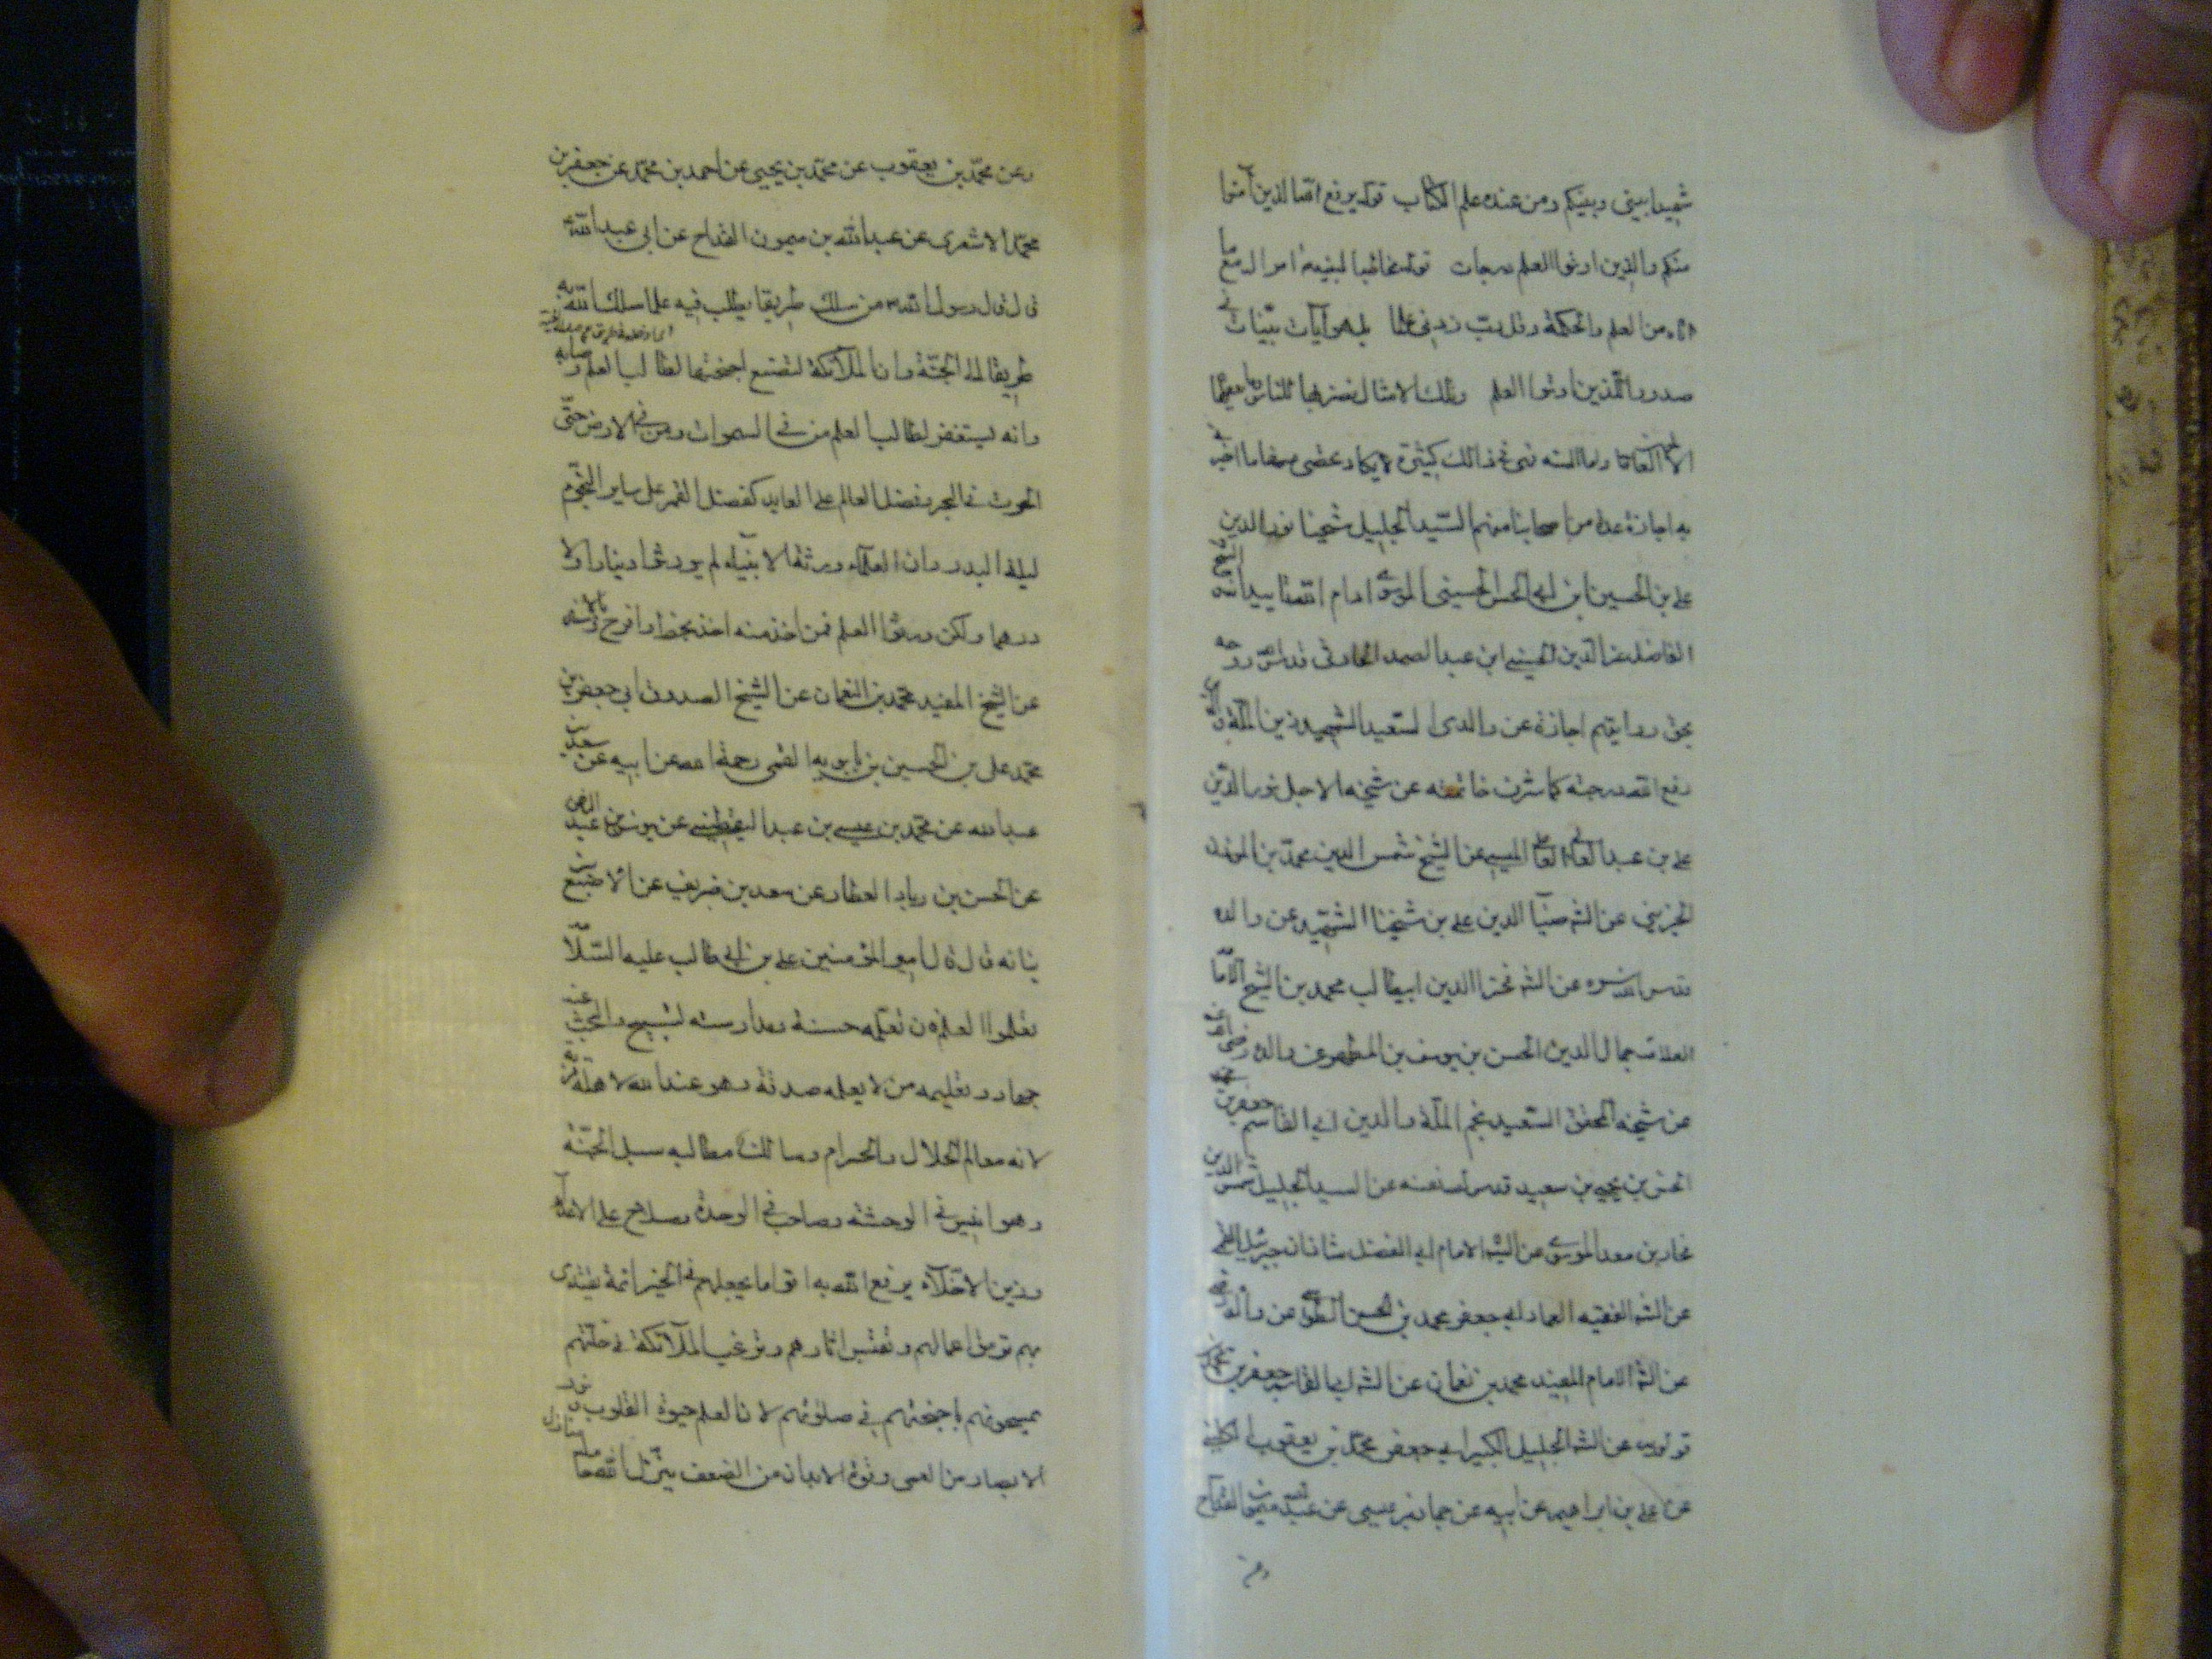 شهيدا بينى وبينكم ومن عنده علم الكتاب قوله يرفع الله الذين آمنوا
منكم والذين اوتوا العلم درجات قوله مخاطبا لنبيه امرا له مع ما
اتاه من العلم والحكمة وقل رب زدنى علما بل هو آيات بينات فى
صدور الذين اوتوا العلم وتلك الامثال نضربها للناس وما يعقلها
الا العالمون كثيرة لا يكاد فما اخبرنى
به اجازة عدة من اصحابنا منهم السيد الجليل شيخنا نور الدين
على بن الحسين ابن ابى الحسن الحسينى الموسوى ادام الله تاييده
الفاضل عز الدين الحسين ابن عبد الصمد الحارثى قدس الله روحه
بحق روايتهم اجازة عن والدى السعيد الشهيد زين الملة والدين
رفع الله درجته كما شرف خاتمته عن شيخه الاجل نور الدين
على بن عبد العالى العاملى الميسى عن الشيخ شمس الدين محمد بن المؤذن
الجزينى عن الشيخ ضياء الدين على بن شيخنا الشهيد عن والده
قدس الله سره عن الشيخ فخر الدين ابيطالب محمد بن الشيخ الامام
العلامة جمال الدين الحسن بن يوسف بن المطهر عن والده رضى الله عنه
عن شيخه المحقق السعيد نجم الملة والدين ابى القاسم جعفر بن
الحسن بن يحيى بن سعيد قدس الله نفسه عن السيد الجليل شمس الدين
فخار بن معد الموسوى عن الشيخ الامام ابى الفضل شاذان جبرئيل القمى
عن الشيخ الفقيه العماد ابى جعفر محمد بن الحسن الطوسى عن والده
عن الشيخ الامام المفيد محمد بن نعمان عن الشيخ ابى القاسم جعفر بن محمد
قولويه عن الشيخ الجليل الكبير ابى جعفر محمد بن يعقوب الكلينى
عن على بن ابراهيم عن ابيه عن حماد بن عيسى عن عبد الله ميمون القداح
وعن
وعن محمد بن يعقوب عن محمد بن يحيى عن احمد بن محمد عن جعفر بن
محمد الاشعرى عن عبد الله بن ميمون القداح عن ابى عبد الله
قال قال رسول الله من سلك طريقا يطلب فيه علما سلك الله به
طريقا الى الجنة وان الملآئكة لتضع اجنحتها لطالب العلم رضا به
وانه ليستغفر لطالب العلم من فى السموات ومن فى الارض حتى
الحوت فى البحر وفضل العالم على العابد كفضل القمر على ساير النجوم
ليلة البدر وان العلمآء ورثة الانبيآء لم يورثوا دينارا ولا
درهما ولكن ورثوا العلم فمن اخذ منه اخذ بحظ وافر ح
عن الشيخ المفيد محمد بن النعمان عن الشيخ الصدوق ابى جعفر بن
محمد على بن الحسين بن بابويه القمى رحمة الله عن ابيه عن سعد بن
عبد الله عن محمد بن عيسى بن عبد اليقطينى عن يونس بن عبد الرحمن
عن الحسن بن زياد العطار عن سعد بن ظريف عن الاصبغ بن
نباته قال قال امير المؤمنين على بن ابى طالب عليه السلام
تعلموا العلم فان تعلمه حسنة ومدارسته تسبيح والبحث عنه
جهاد وتعليمه من لا يعلمه صدقة وهو عند الله لاهله قربة
لانه معالم الحلال والحرام وسالك بطالبه سبل الجنة
وهو انيس فى الوحشة وصاحب فى الوحدة وسلاح على الاعدآء
وزين الاخلآء يرفع الله به اقواما يجعلهم فى الخير ائمة يقتدى
بهم ترمق اعمالهم وتقتبس اثارهم وترغب الملآئكة فى خلتهم
يمسحونهم باجنحتهم فى صلوتهم لان العلم حيوة القلوب ونور
الابصار من العمى وقوة الابدان من الضعف ينزل الله حامله منازل